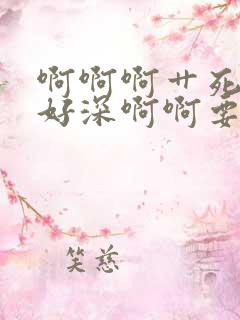 啊啊啊艹死
好深啊啊要
笑慈